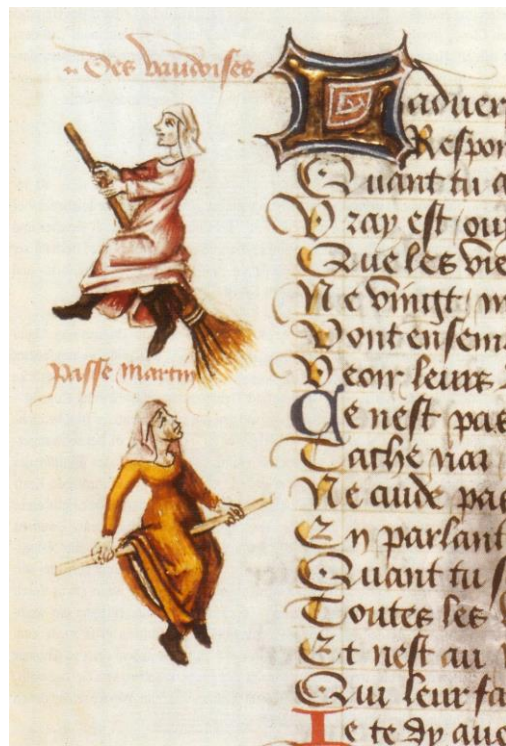 Des vaudoises
passe martin
Laduer
Respon
Quant tu a
Vray est / ouy
Que les vie
Ne vingt / m
Vont ensem
Veoir leurs
Ce nest pas
Tache nai
Ne cuide pas
En parlant
Quant tu
Toutes les
Et nest au
Qui leur fa
Je te dy auo